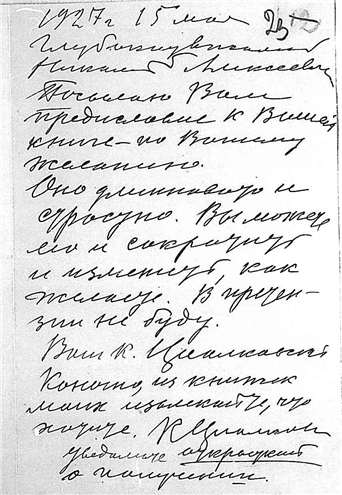 1927 г 15 мая
Глубокоуважаемый
Николай Алексеевич
Посылаю Вам
предисловие к Вашей
книге – по Вашему
желанию.
Оно длинновато и
Вы можете
его и сократить
и изменить, как
желаете. В претен-
зии не буду.
Ваш К. Циолковский
Конечно, из книжек
моих извлекайте, что
хотите. КЦиолков
уведомите открыткой
о получении.